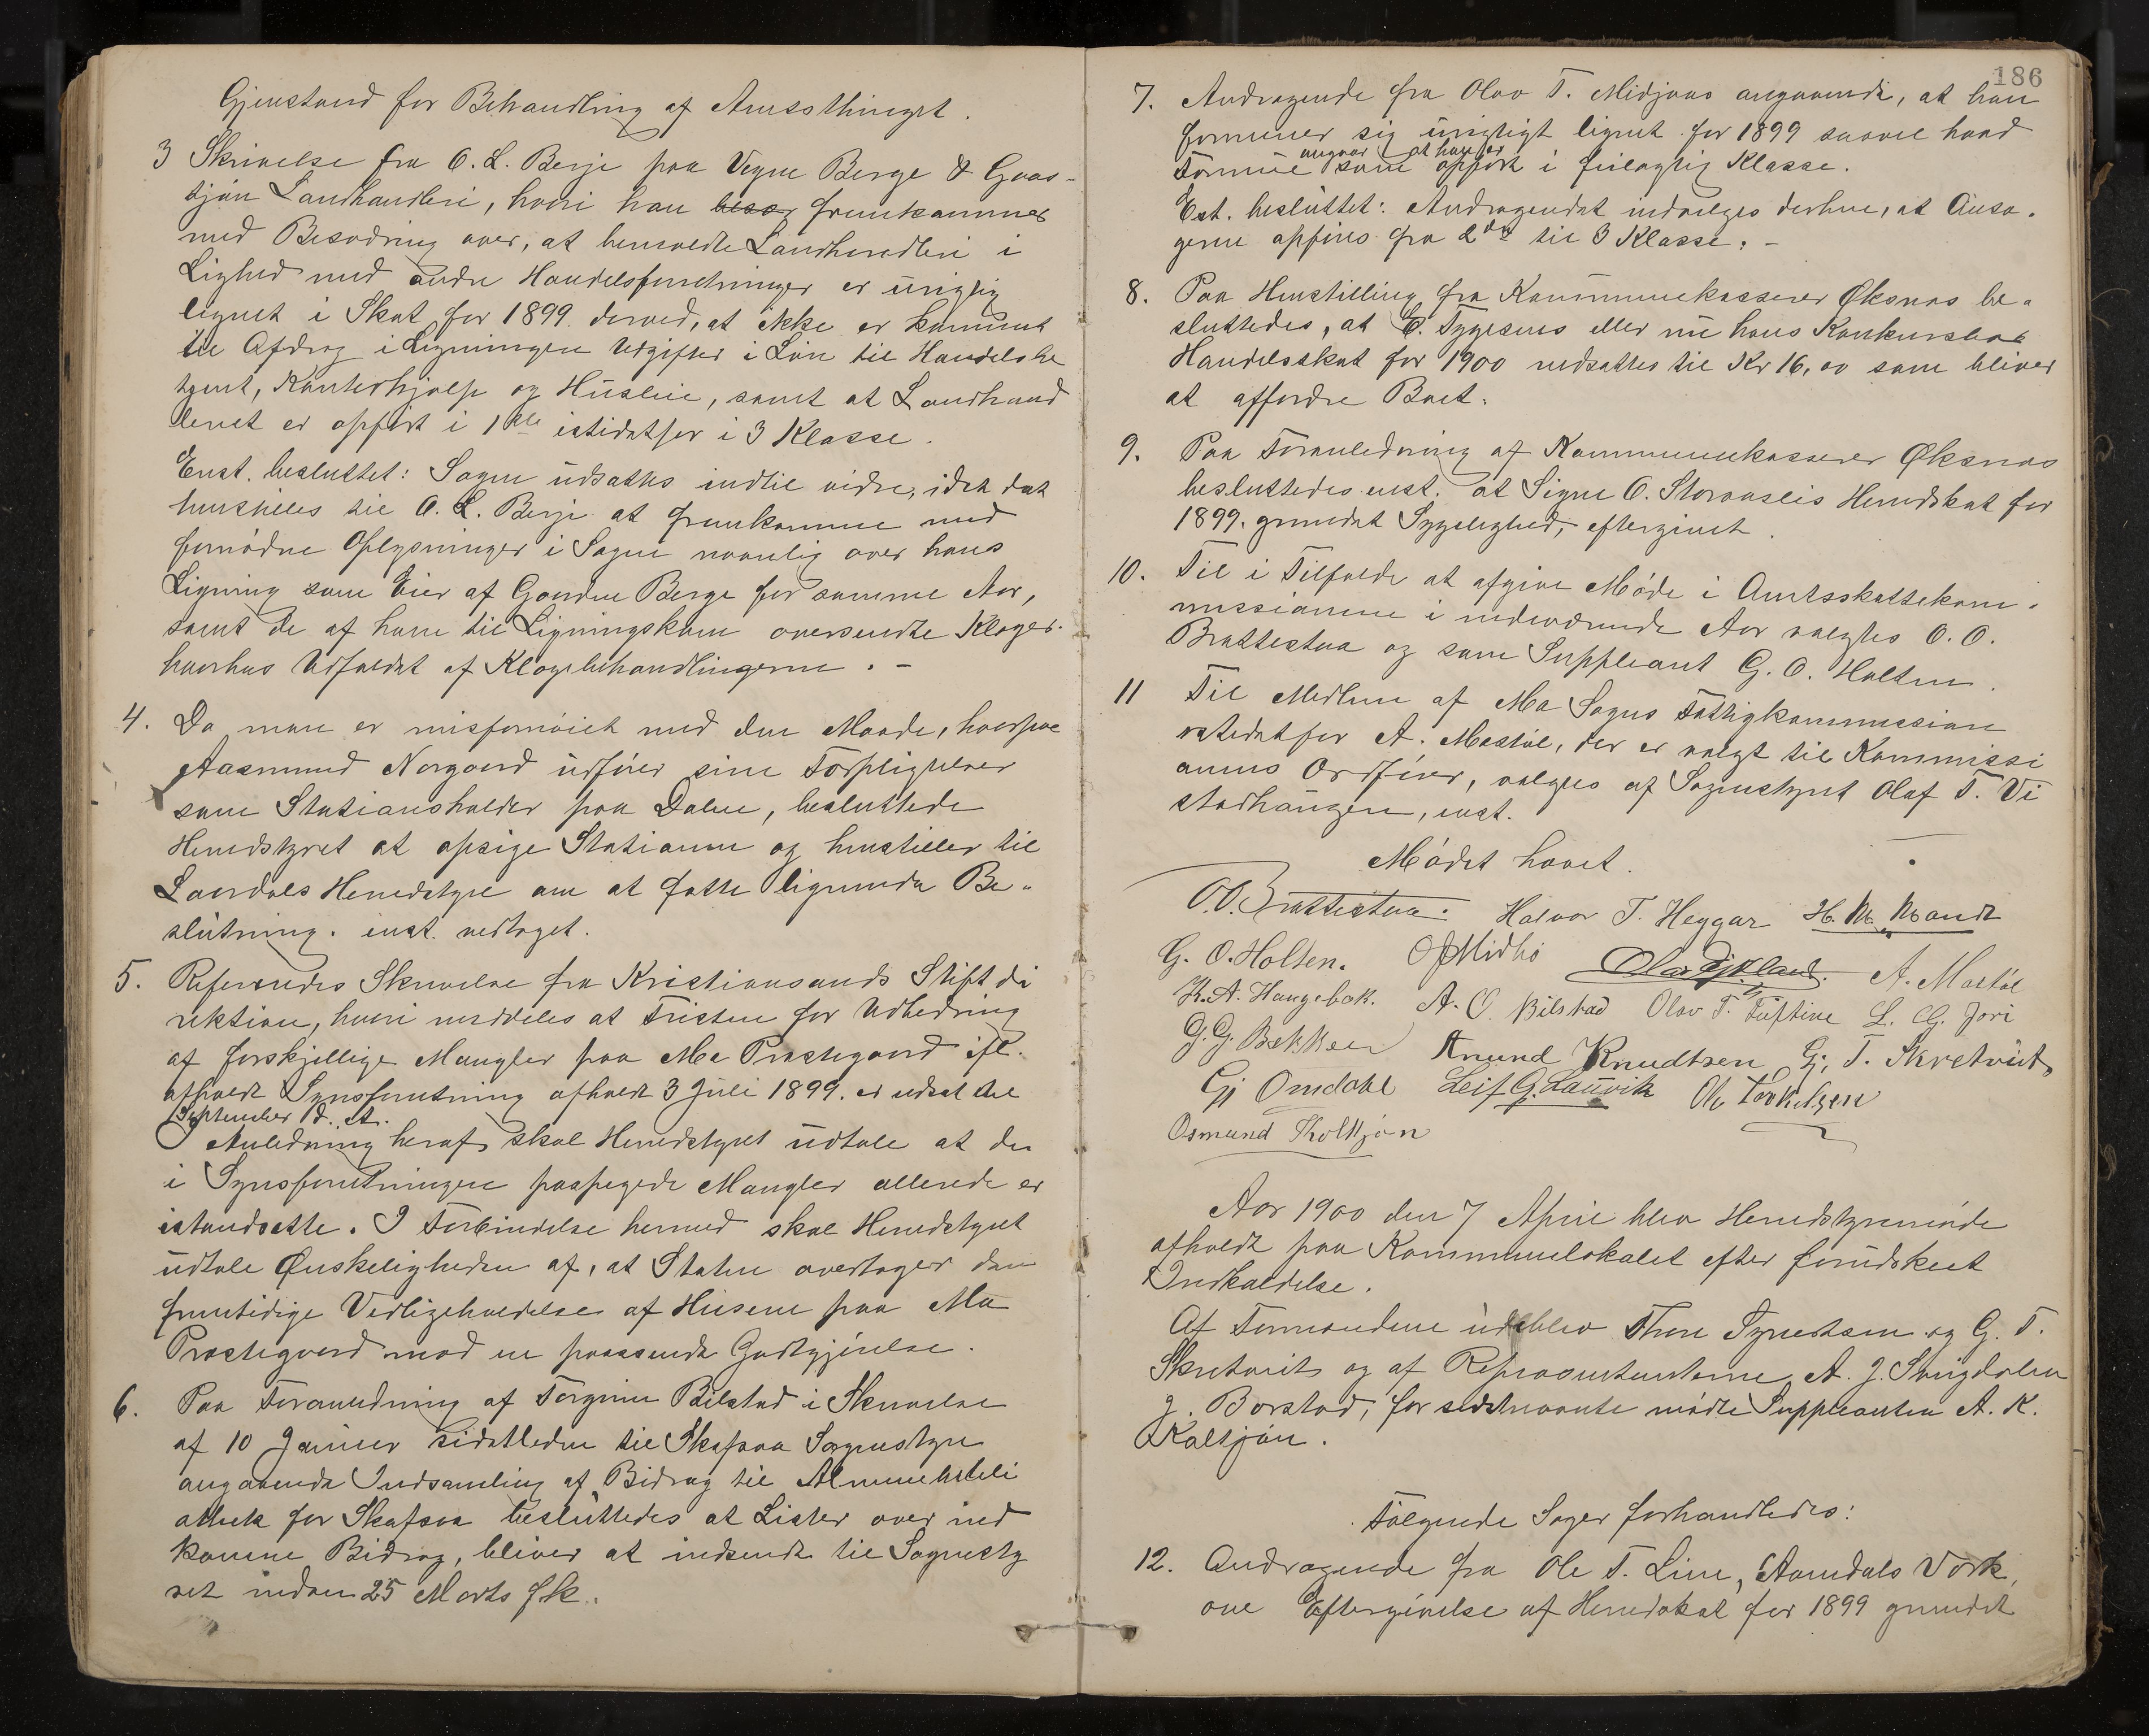 Gjenstand for Behandling af Amtsthinget.
3 Skrivelse fra O. L. Berge paa Vegne Berge & Gaas-
tjøn Landhandleri, hvori han besø fremkommer
med Besværing over, at bemeldte Landhandleri i
Lighed med andre Handelsforretninger er urigtig
lignet i Skat for 1899 derved, at ikke er kommet
til Afdrag i Ligningen Udgifter i Løn til Handelsbe
tjent, Kontorhjælp og Husleie, samt at Landhand
leriet er opført i 1ste istedetfor i 3 Klasse.
Enst. besluttet: Sagen udsættes indtil videre, idet det
henstilles til O. L. Berge at fremkomme med
fornødne Oplysninger i Sagen navnlig over hans
Ligning som Eier af Gaarden Berge for samme Aar,
samt de af ham til Ligningskom oversendte Klager
hvorhos Udfaldet af Klagebehandlingerne. -
4. Da man er misfornøiet med den Maade, hvorpaa
Aasmund Norgaard udfører sine Forpligtelser
som Stationsholder paa Dalen, besluttede
Herredstyret at opsige Stationen og henstiller til
Laardals Herredstyre om at fatte lignende Be-
slutning. enst. vedtaget.
5. Refereredes Skrivelse fra Kristiansands Stiftdi
rektion, hvori meddeles at Fristen for Udbedring
af forskjellige Mangler paa Mo Præstegaard ifl.
afholdt Synsforretning afholdt 3 Juli 1899. er udsat til
September d. A.
I Anledning heraf skal Herredstyret udtale at de
i Synsforretningen paapegede Mangler allerede er
istandsatte. I Forbindelse hermed skal Herredstyret
udtale Ønskeligheden af, at Staten overtager den
fremtidige Vedligeholdelse af Husene paa Mo
Præstegaard mod en passende Godtgjørelse.
6. Paa Foranledning af Torgrim Bilstad i Skrivelse
af 10 Januar sidstleden til Skafsaa Sognestyre
angaaende Indsamling af Bidrag til Almuebibli
othek for Skafsaa besluttedes at Lister over ind
komne Bidrag, bliver at indsende til Sognesty
ret inden 25 Marts f.k.
186
7. Andragende fra Olav T. Midjaas angaaende, at han
formener sig urigtigt lignet for 1899 saavel hvad
angaar at han er
Formue som opført i feilagtig Klasse.
Est. besluttet: Andragendet indvilges derhen, at Ansø-
geren opføres fra 2den til 3 Klasse. -
8. Paa Henstilling fra Kommunekasserer Øksnas be-
sluttedes, at C. Tygesens eller nu hans Konkursbos
Handelsskat for 1900 nedsættes til Kr 16,00 som bliver
at affordre Boet.
9. Paa Foranledning af Kommunekasserer Øksnas
besluttedes enst. at Signe O. Storaaslis Herredskat for
1899. grundet Sygelighed, eftergivet.
10. Til i Tilfælde at afgive Møde i Amtsskattekom-
missionen i indeværende Aar valgtes O. O.
Brattestaa og som Suppleant G. O. Holten.
11 Til Medlem af Mo Sogns Fattigkommission
istedetfor A. Mostøl, der er valgt til Kommissi
onens Ordfører, valgtes af Sognestyret Olaf T. Vi
stadhaugen, enst.
Mødet hævet.
O.O. Brattestaa. Halvor T. Heggar H. M. Mandt
G. O. Holten. O J Midbø A. Mostøl
K. A. Haugebak. A. O. Bilstad Olav T. Tuftine L. G. Jori
G. G. Bekken Anund Knudtsen G. T. Skretveit
Gj Omdahl Leif G. Lauvik Ole Torkelsen
Osmund Koltjøn
Aar 1900 den 7 April blev Herredstyremøde
afholdt paa Kommunelokalet efter forudskeet
Indkaldelse.
Af Formændene udeblev Thore Synestsen og G. T.
Skretveit og af Repræsentanterne A. J. Stigdalen
J. Borstad, for sidstnævnte mødte Suppleanten A. K.
Koltjøn.
Følgende Sager forhandledes:
12. Andragende fra Ole T. Lien, Aamdals Værk,
om Eftergivelse af Herredskat for 1899 grundet